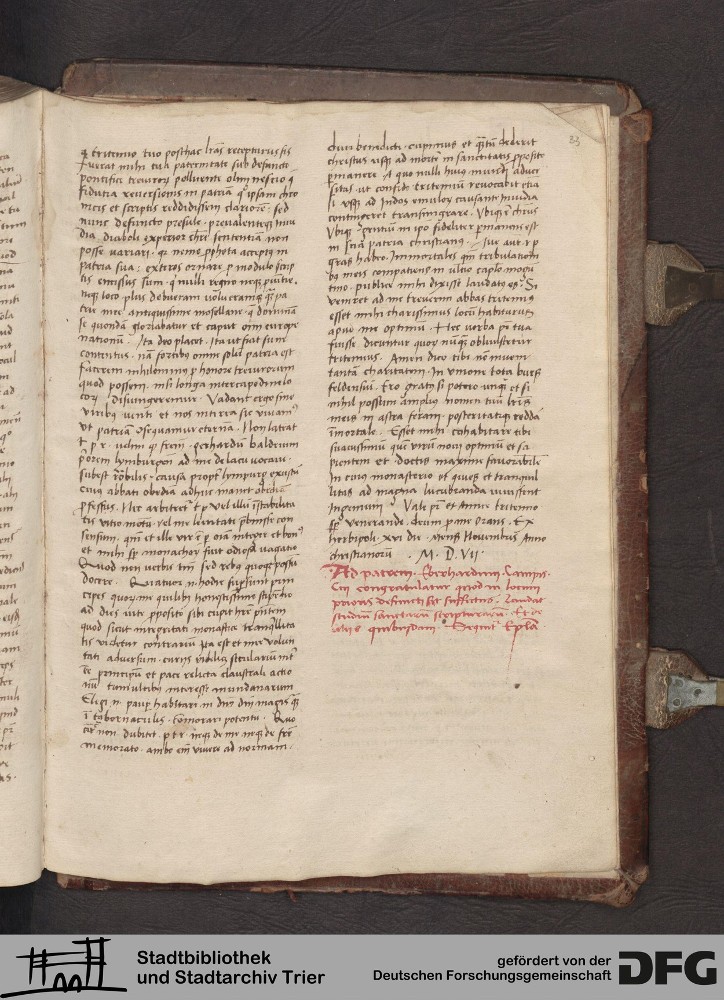 q̃ tritemio tuo posthac lr̃as recepturus sis
fuerat mihi tua paternitate sub defuncto
pontifice treuiror̃ pollicente olim nescio q̃
fiducia reuersionis in patriam
meis et scriptis reddidissem clariorẽ: sed
nunc defuncto presule · preualenteq; inui
dia diaboli experior sententiam non
posse variari · qr nemo ꝓpheta acceptꝰ in
patria sua: exteros ornare
tis enixiꝰ sum · q nulli regno neq;
neq; loco plus debueram volueramq;
trie mee antiquissime mosellane · q dominãm
se quondã gloriabatur et caput om̃i europe
nationũ · Ita deo placet · Ita vt fiat sum
contentus · nã fortibꝰ omne solũ patria est
faterem nihilominꝰ ꝓ honore treuerorum
quod possem · nisi longa intercapedine lo
corꝝ disiungeremur · Vadant ergo sine
viribꝰ venti et nos interra sic viuamꝰ
vt patriã ꝯsequamur eternã · Non lateat
gerhardũ balderum
p̃orem lymburgen̄ ad me de lacu vocaui ·
subest rõbilis causa ꝓpter lympurg
cuiꝰ abbati obedia adhuc manet
ꝓfessus · Nec arbitret̃ t p̃ vel illũ ĩstabilita
tis vitio motũ · vel me leuitate p̃buisse con
sensum · qm̃ et ille vir ẽ ꝑ oĩa integer et bonꝰ
et mihi sꝑ monachor̃ fuit odiosa vagatio
Quod non verbis tm̃ sed rebꝰ quoq; possũ
docere · Quatuor n · hodie supersunt prin
cipes quorꝝ me quilibet honestissimo stipendio
ad dies vite ꝓpositi sibi cupit here pñtem
quod sicut integritati monastice tranquillita
tis videtur contrariũ ita est et mee volun
tati aduersum · curijs nobiliũ seculariũ
eẽ principũ et pace relicta claustrali actio
nũ tumultibꝰ interesse mundanarum
Elegi n · pauꝑ habitare in domo dñi magis q̃
ĩ tabernaculis cõmorari potentũ · Quo
circa non dubitet · p t r neq; de me neq; de frẽ
memorato · ambo em̃ viuere ad normam ·
diui benedicti · cupimus et q̃tũ dederit
christus vsq; ad mortẽ in sanctitatis ꝓposito
ꝑmanere · A quo nulla huiꝰ mundi aduer
sitas · vt confido tritemiũ reuocabit etiã
si vsq; ad Indos emulor̃ causante inuidia
contingeret transmigrare · Vbiq; christus
Vbiq; gentiũ in ipo fideliter ꝑmanens est
in sc̃ia patria christianꝰ · Sue aut r p
gr̃as habeo Immortales qm̃ tribulationi
bꝰ meis compatiens in vltio caplo mogũ
tino · publice mihi dixisse laudatꝰ es · Si
veniret ad me treuerim abbas tritemius
esset mihi charissimus locũ habiturus
apud me optimũ · Hec verba pr̃ tua
fuisse dicuntur quor̃ nũq̃ obliuiscetur
tritemius · Amen dico tibi nõ inueni
tantã charitatem In vnione tota burs
feldensiũ · Ero gratꝰ si potero vnq̃ et si
nihil possum ampliꝰ nomen tuũ lr̃is
meis in astra feram · posteritatiq; reddã
ĩmortale · Esset mihi cohabitare tibi
suauissimũ quẽ virũ noui optimũ et sa
pientem et doctis maxime fauorabilẽ
In cuiꝰ monasterio et quies et tranquil
litas ad magna lucubranda inuissent
Ingenium · Vale pr̃ et amice tritemio
sꝑ venerande deum ꝓ me orans · Ex
herbipoli · xvi die mens̃ Nouembris Anno
christianorũ · M · D · VII ·
Ad patrem · Eberhardum Campis ·
Cui congratulatur quod in locum
prioris defuncti sit suffectus · Laudat
studium sanctarum scripturarum · Et de
alijs quibusdam · Sequit̃ Ep̃la
33
Stadtbibliothek
und Stadtarchiv Trier
gefördert von der
Deutschen Forschungsgemeinschaft
DFG